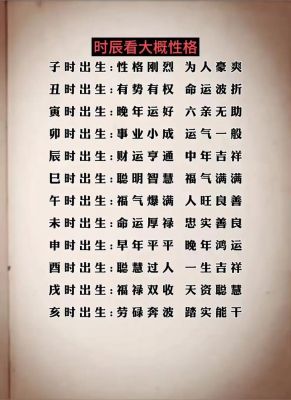 时辰看大概性格
子时出生:性格刚烈 为人豪爽
丑时出生:有势有权 命运波折
寅时出生:晚年运好 六亲无助
卯时出生:事业小成 运气一般
辰时出生:财运亨通 中年吉祥
巳时出生:聪明智慧 福气满满
午时出生:福气爆满 人旺良善
未时出生:命运厚禄 忠实善良
申时出生:早年平平 晚年鸿运
酉时出生:聪慧过人 一生吉祥
戌时出生:福禄双收 天资聪慧
亥时出生:劳碌奔波 踏实能干